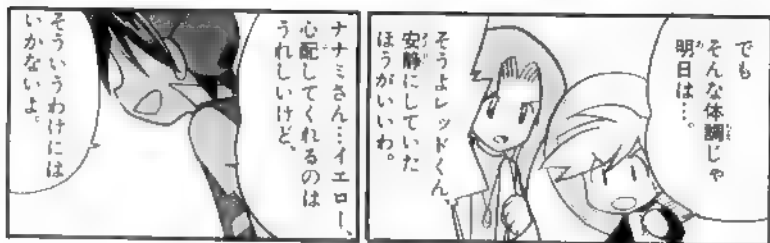 でも
そんな体調じゃ
明日は…。
そうよレッドくん、
安静にしていた
ほうがいいわ。
ナナミさん…イエロー、
心配してくれるのは
うれしいけど、
そういうわけには
いかないよ。